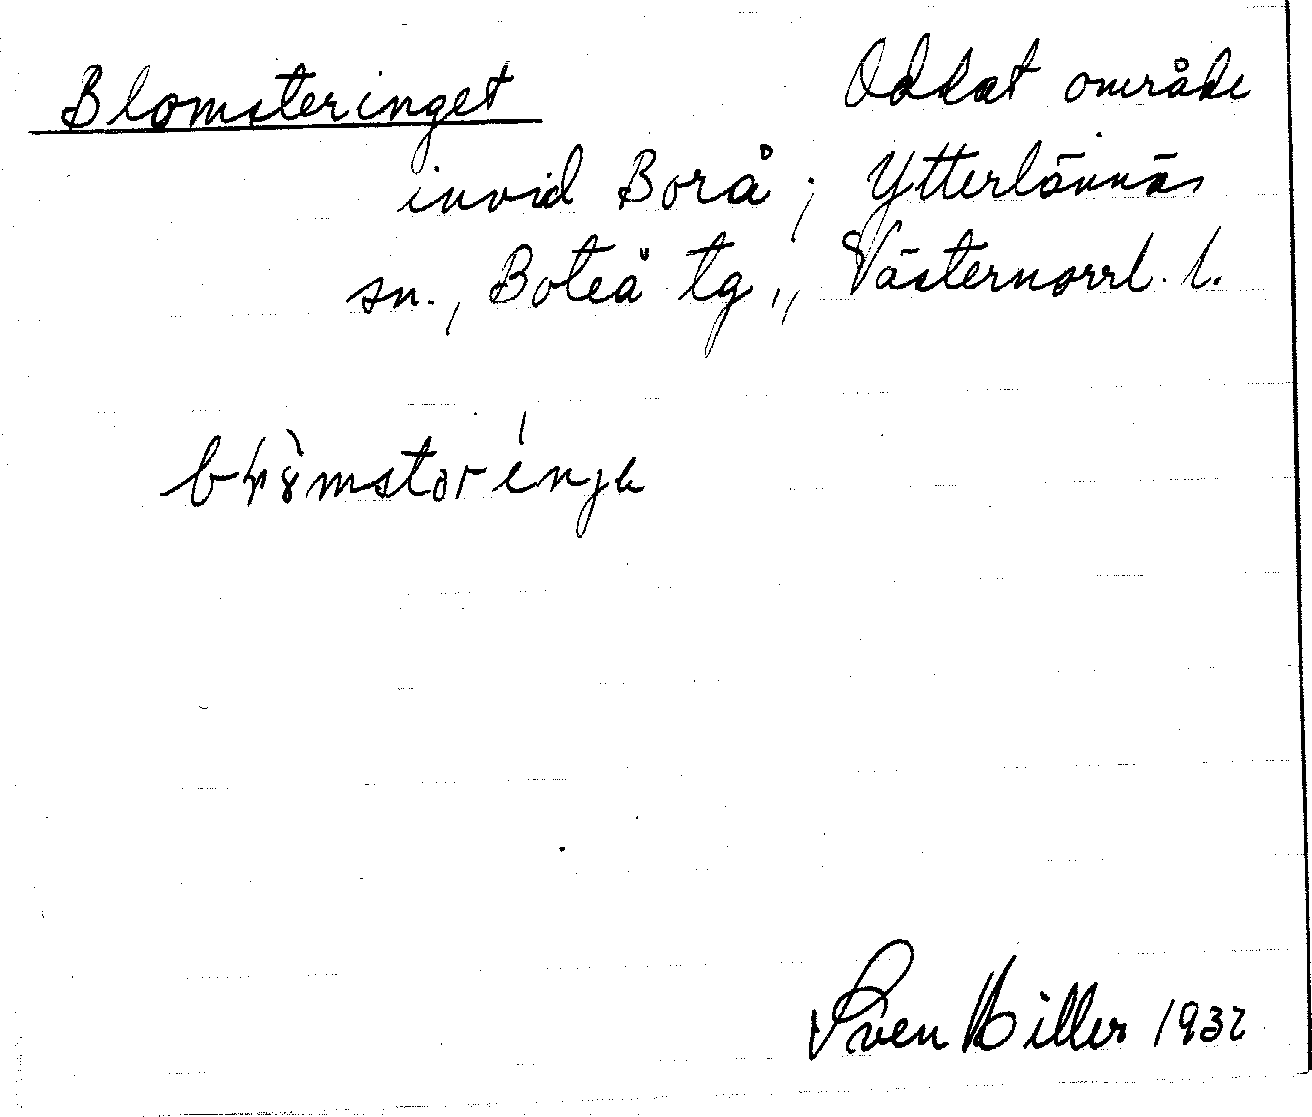 Blomsteringet Odlat område
invid Borå; Ytterlännäs
sn., Boteå tg., Västernorrl. l.
Sven Hiller 1932